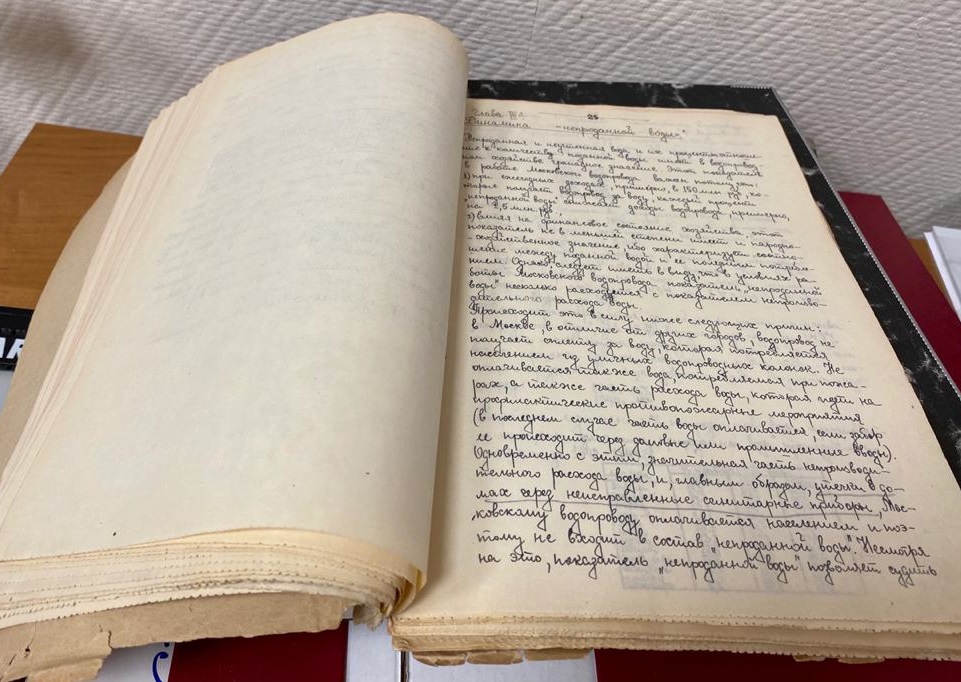 25
Глава III
Динамика „непроданной воды"
Непроданная и неучтенная вода и их процентное отноше-
ние к количеству поданной воды имеют в водопровод-
ном хозяйстве громадное значение. Этот показатель
в работе Московского водопровода важен потому, что:
1) при ежегодных доходах, примерно, в 150 млн. руб., ко-
торые получает водопровод за воду, каждый процент
„непроданной воды" снижает доходы водопровода, примерно,
на 1,5 млн. руб.;
2) влияя на финансовое состояние хозяйства, этот
показатель не в меньшей степени имеет и народно-
-хозяйственное значение, ибо характеризует соотно-
шение между поданной водой и ее полезным потребле-
нием. Однако следует иметь в виду, что в условиях ра-
боты Московского водопровода показатель „непроданной
воды" несколько расходится с показателем непроизво-
дительного расхода воды.
Происходит это в силу ниже следующих причин:
в Москве, в отличие от других городов, водопровод не
получает оплату за воду, которая потребляется
населением из уличных водопроводных колонок. Не
оплачивается также вода, потребляемая при пожа-
рах, а также часть расхода воды, которая идет на
профилактические противопожарные мероприятия
(в последнем случае часть воды оплачивается, если забор
ее происходит через домовые или промышленные вводы).
Одновременно с этим, значительная часть непроизводи-
тельного расхода воды, и, главным образом, утечки в до-
мах через неисправленные санитарные приборы, Мос-
ковскому водопроводу оплачивается населением и поэ-
тому не входит в состав „непроданной воды". Несмотря
на это, показатель „непроданной воды" позволяет судить